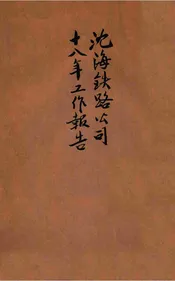 沈海鉄路公司
十八年工作報告